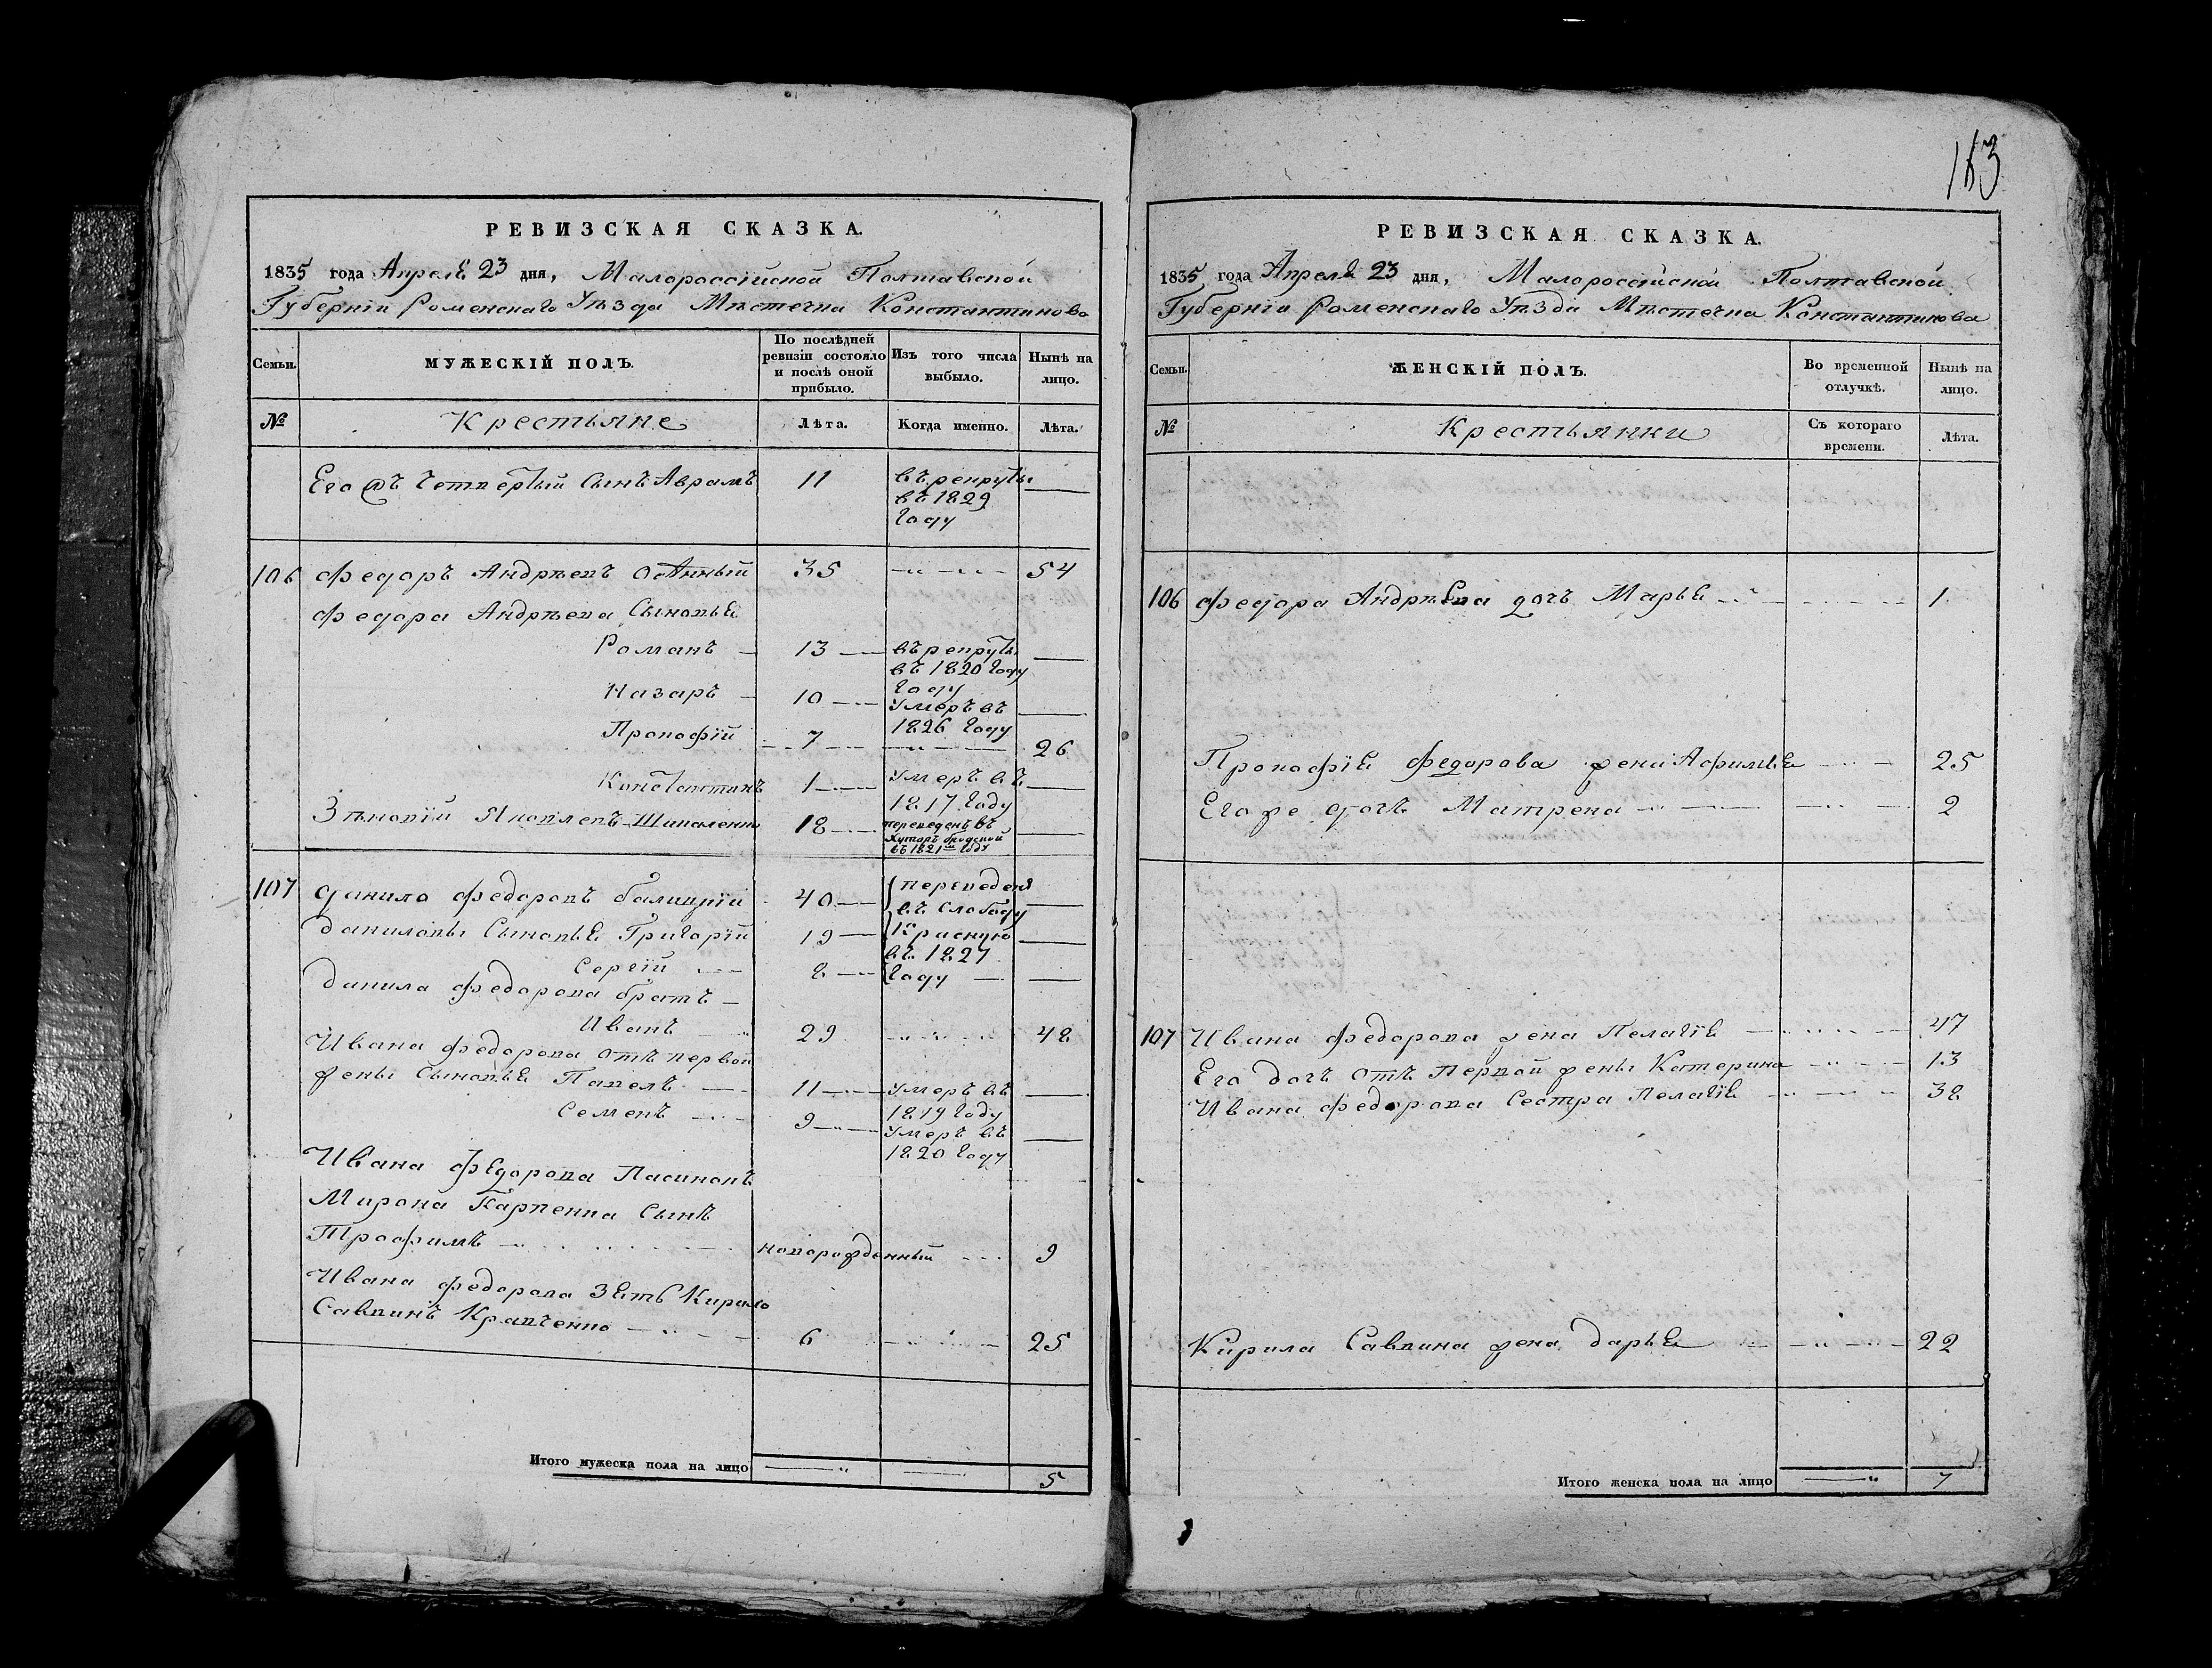 183
РЕВИЗСКАЯ СКАЗКА.
1835 года Апреля 23 дня, Малороссійской Полтавской
Губерніи Роменскаго Уѣзда Мѣстечка Константинова
Семьи.
МУЖЕСКІЙ ПОЛЪ.
По послѣдней
ревизіи состояло
и послѣ оной
прибыло.
Изъ того числа
выбыло.
Нынѣ на
лицо.
№
Крестьяне
Лѣта.
Когда именно.
Лѣта.
Его четвертый Сынъ Аврамъ 11 въ рекруты
въ 1829
году
106 Федоръ Андрѣевъ 35 54
Федора Андрѣева Сыновья
Романъ 13 въ рекруты
въ 1820 году
году
Назаръ 10 Умеръ въ
1826 году
Прокофій 7 26
Константинъ 1 Умеръ въ
1817 году
Зѣновій Яковлевъ Шаполенко 18 переведенъ въ
Хуторъ
въ 1821м году
107 Данило Федоровъ Галицкій 40 переведены
въ Слободу
Даниловы Сыновья Григорій 19 Красную
въ 1827
Сергій 8 году
Данила Федорова братъ
Иванъ 29 48
Ивана Федорова отъ первой
жены Сыновья Павелъ 11 Умеръ въ
1819 году
Семенъ 9 Умеръ въ
1820 году
Ивана Федорова Пасинокъ
Мирона Карпенка Сынъ
Трофимъ новорожденный 9
Ивана Федорова Зять Кирило
Саввинъ Кравченко 6 25
Итого мужеска пола на лицо 5
РЕВИЗСКАЯ СКАЗКА.
1835 года Апреля 23 дня, Малороссійской Полтавской
Губерніи Роменскаго Уѣзда Мѣстечка Константинова
Семьи.
ЖЕНСКІЙ ПОЛЪ.
Во временной
отлучкѣ.
Нынѣ на
лицо.
№
Крестьянки
Съ котораго
времени.
Лѣта.
106 Федора Андрѣева дочь Марья 1
Прокофія Федорова жена Афимья 25
Его же дочь Матрена 2
107 Ивана Федорова жена Пелагія 47
Его дочь отъ первой жены Катерина 13
Ивана Федорова Сестра Пелагія 38
Кирила Саввина жена Дарья 22
Итого женска пола на лицо 7